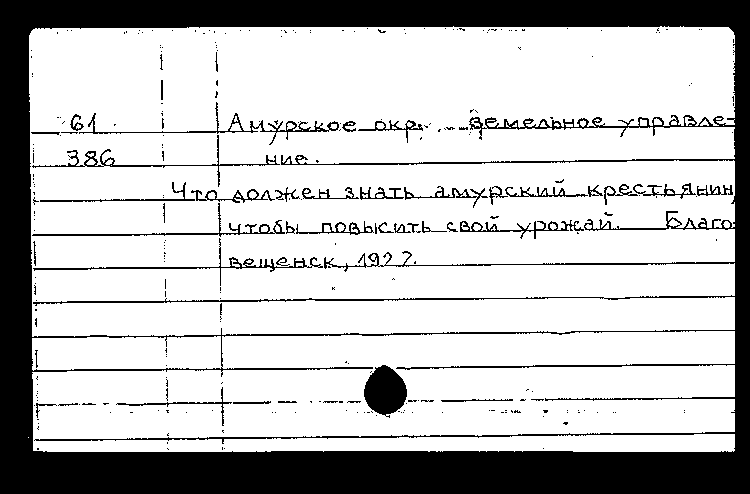 61 Амурское окр. земельное управле-
386 ние.
Что должен знать амурский крестьянин,
чтобы повысить свой урожай. Благо-
вещенск, 192?.